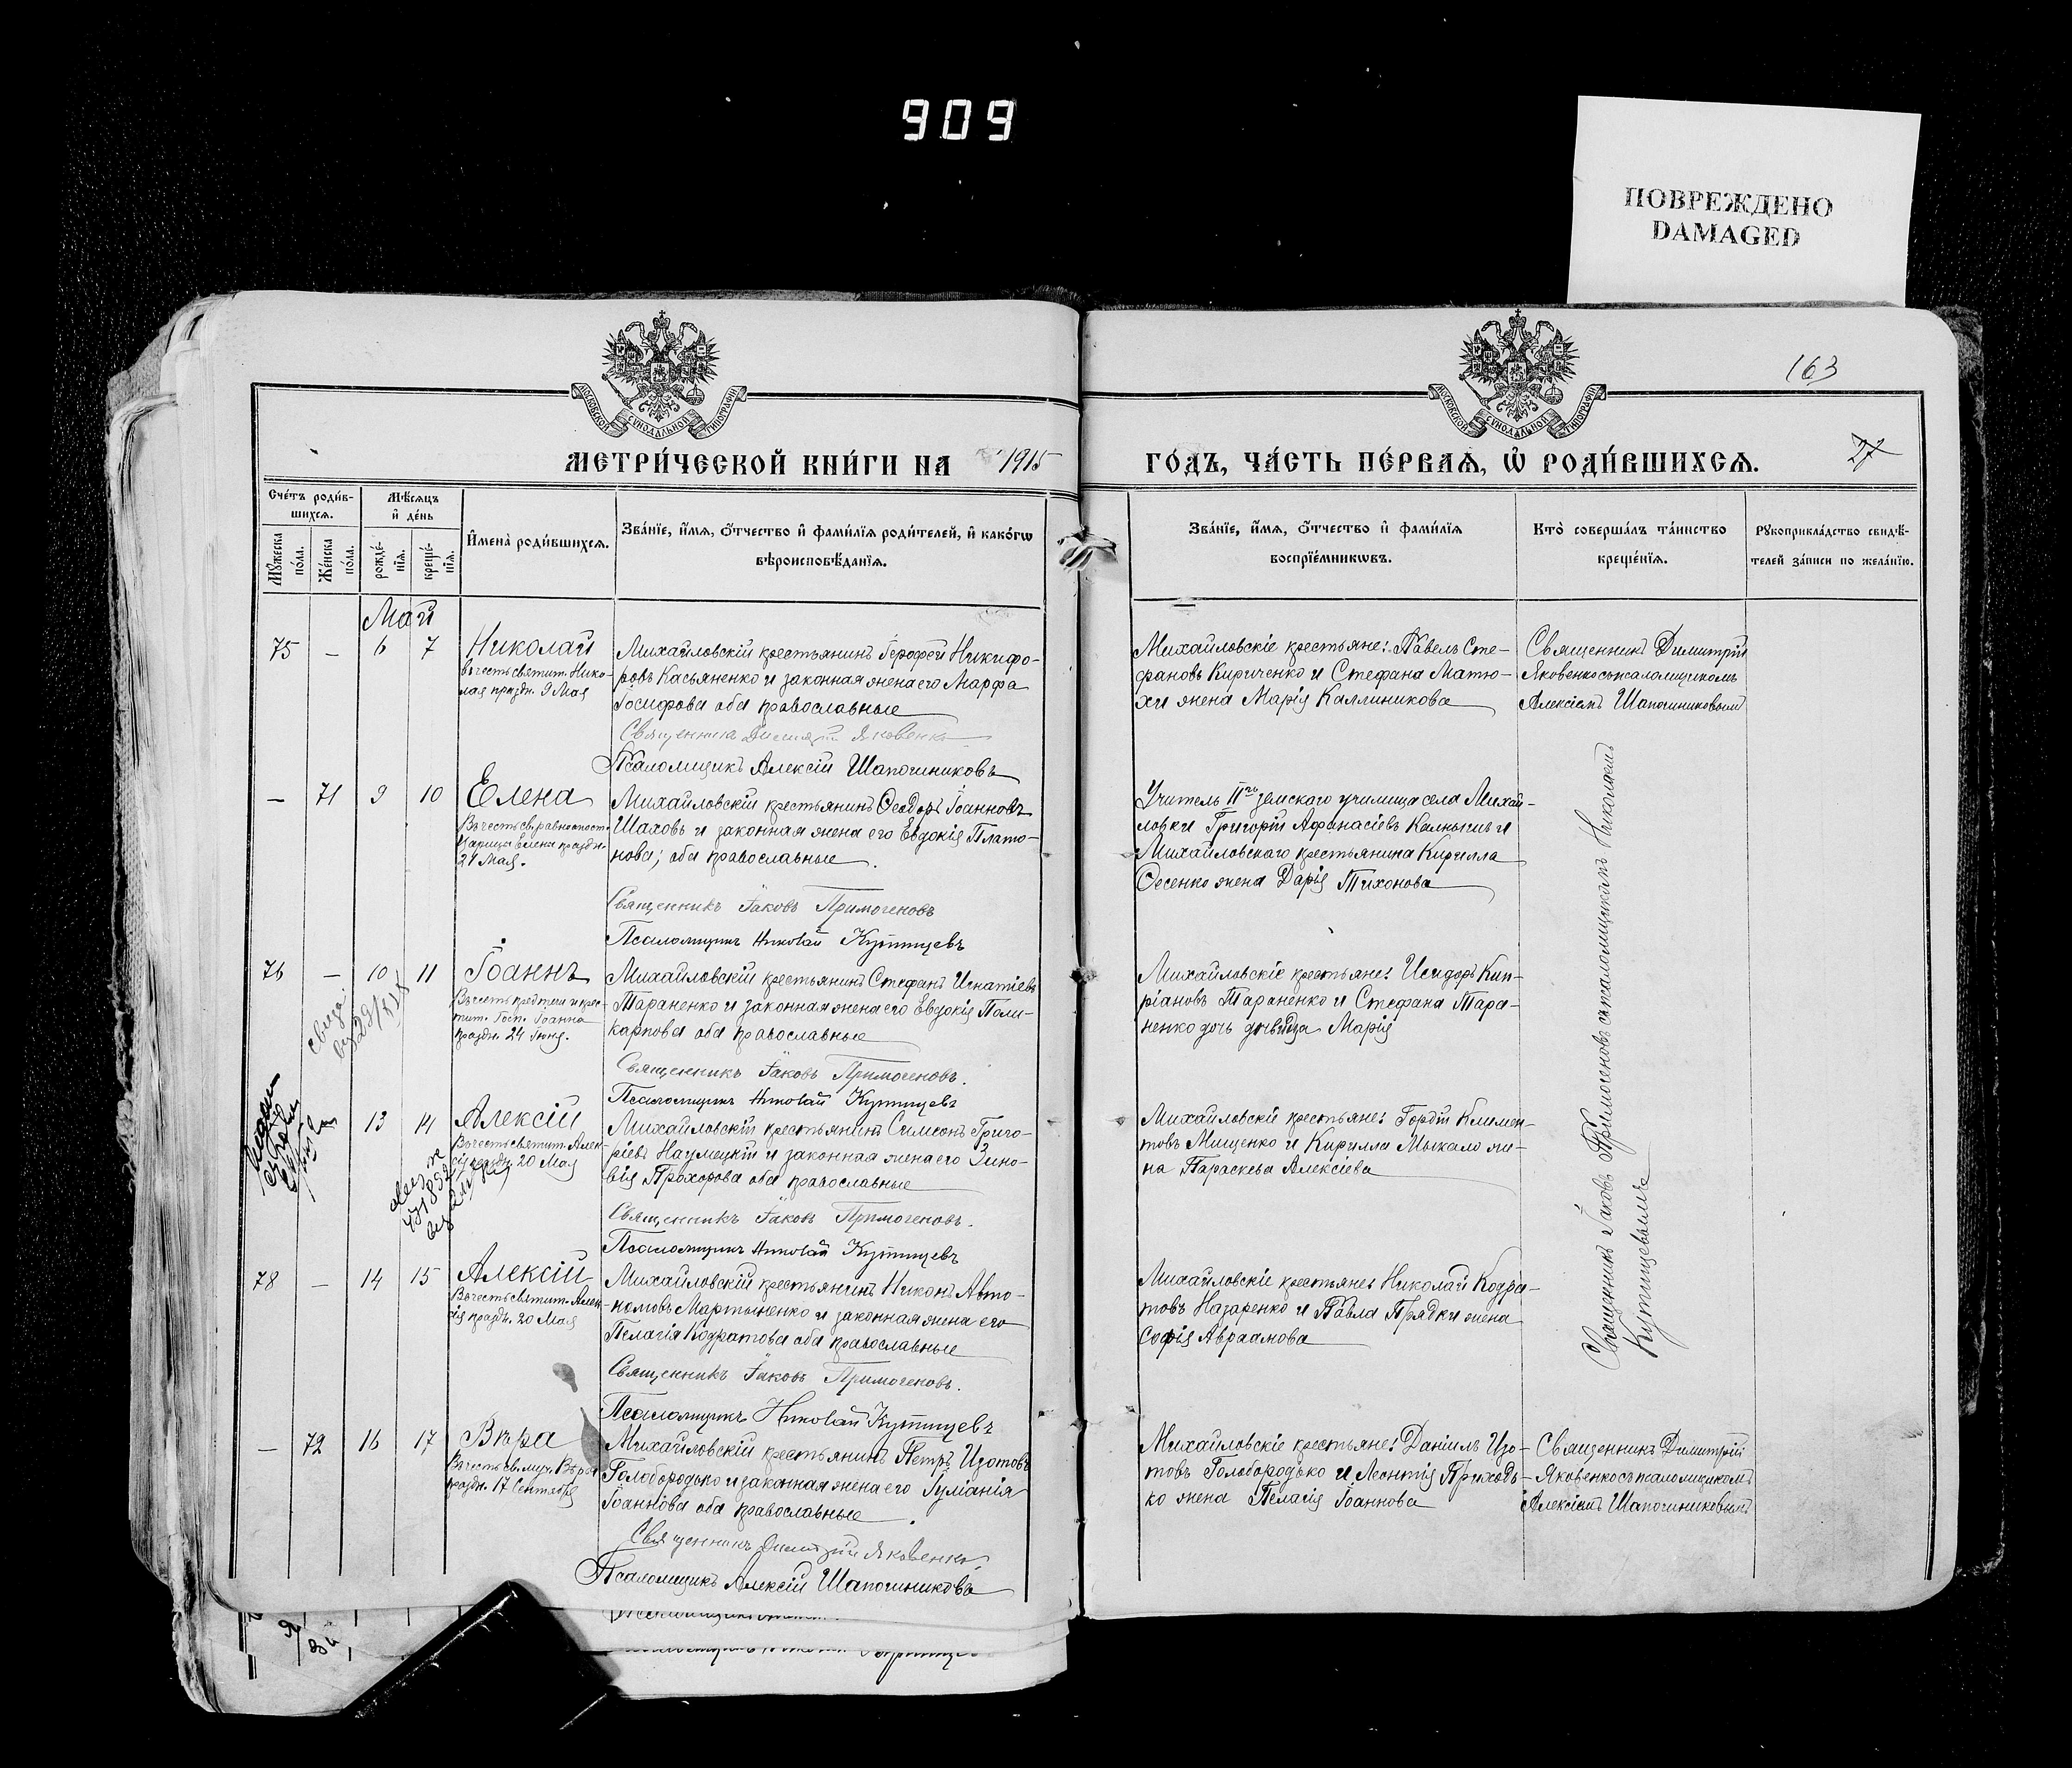 909
ПОВРЕЖДЕНО
DAMAGED
163
МОСКОВСКОЙ СѴНОДАЛЬНОЙ ТИПОГРАФІИ
МОСКОВСКОЙ СѴНОДАЛЬНОЙ ТИПОГРАФІИ
МЕТРИ́ЧЕСКОЙ КНИ́ГИ НА 1915
ГО́ДЪ, ЧА́СТЬ ПЕ́РВАѦ, Ѡ҆ РОДИ́ВШИХСѦ.
27
Сче́тъ роди́вшихсѧ.
Мѹ́жеска по́ла.
Же́нска по́ла.
Мѣ́сѧцъ и҆ де́нь
рожде́нїѧ.
креще́нїѧ.
И҆мена̀ роди́вшихсѧ.
Зва́нїе, и҆́мѧ, ѻ҆́тчество и҆ фами́лїѧ роди́телей, и҆ како́гѡ
вѣроисповѣ́данїѧ.
Зва́нїе, и҆́мѧ, ѻ҆́тчество и҆ фами́лїѧ
воспрїе́мникѡвъ.
Кто̀ соверша́лъ та́инство
креще́нїѧ.
Рѹкоприкла́дство свидѣ́-
телей за́писи по жела́нїю.
Май
75 — 6 7 Николай
въ честь святит. Нико-
лая праздн. 9 Мая
Михайловскій крестьянинъ Іерофей Никифо-
ровъ Касьяненко и законная жена его Марфа
Іосифова оба православные
Священникъ Димитрій Яковенко
Псаломщикъ Алексій Шапошниковъ
Михайловскіе крестьяне: Павелъ Сте-
фановъ Кириченко и Стефана Матю-
хи жена Марія Каллиникова
Священникъ Димитрій
Яковенко съ псаломщикомъ
Алексіемъ Шапошниковымъ
— 71 9 10 Елена
Въ честь св. равноапост.
царицы Елены праздн.
21 Мая.
Михайловскій крестьянинъ Ѳеодоръ Іоанновъ
Шаховъ и законная жена его Евдокія Плато-
нова; оба православные
Священникъ Іаковъ Примогеновъ
Псаломщикъ Николай Куприцевъ
Учитель II го земского училища села Михай-
ловки Григорій Аѳанасіевъ и
Михайловскаго крестьянина Кирилла
жена Дарія Тихонова
76 — 10 11 Іоаннъ
Въ честь предтечи и крес-
тит. Госп. Іоанна
праздн. 24 Іюня.
Михайловскій крестьянинъ Стефанъ Игнатіевъ
Тараненко и законная жена его Евдокія Поли-
карпова оба православные
Священникъ Іаковъ Примогеновъ.
Псаломщикъ Николай Куприцевъ
Михайловскіе крестьяне: Исидоръ Кип-
ріановъ Тараненко и Стефана Тара-
ненко дочь дѣвица Марія
13 14 Алексій
Въ честь святит. Алек-
сія праздн. 20 Мая
Михайловскій крестьянинъ Симеонъ Григо-
ріевъ Наумецкій и законная жена его Зино-
вія Прохорова оба православные
Священникъ Іаковъ Примогеновъ.
Псаломщикъ Николай Куприцевъ
Михайловскіе крестьяне: Гордій Климен-
товъ Мищенко и Кирилла Мыкало же-
на Параскева Алексіева
78 — 14 15 Алексій
Въ честь святит. Алек-
сія праздн. 20 Мая
Михайловскій крестьянинъ Никонъ Авто-
номовъ Мартыненко и законная жена его
Пелагія Кодратова оба православные
Священникъ Іаковъ Примогеновъ.
Псаломщикъ Николай Куприцевъ
Михайловскіе крестьяне: Николай Кодра-
товъ Назаренко и Павла Прядки жена
Софія Авраамова
Священникъ Іаковъ Примогеновъ съ псаломщикомъ Николаемъ
Куприцевымъ
— 72 16 17 Вѣра
Въ честь св. муч. Вѣры
праздн. 17 Сентября
Михайловскій крестьянинъ Петръ Изотовъ
Голобородько и законная жена его Іуліанія
Іоаннова оба православные
Священникъ Димитрій Яковенко.
Псаломщикъ Алексій Шапошниковъ
Михайловскіе крестьяне: Даніилъ Изо-
товъ Голобородько и Леонтія Приходь-
ко жена Пелагія Іоаннова
Священникъ Димитрій
Яковенко съ псаломщикомъ
Алексіемъ Шапошниковымъ